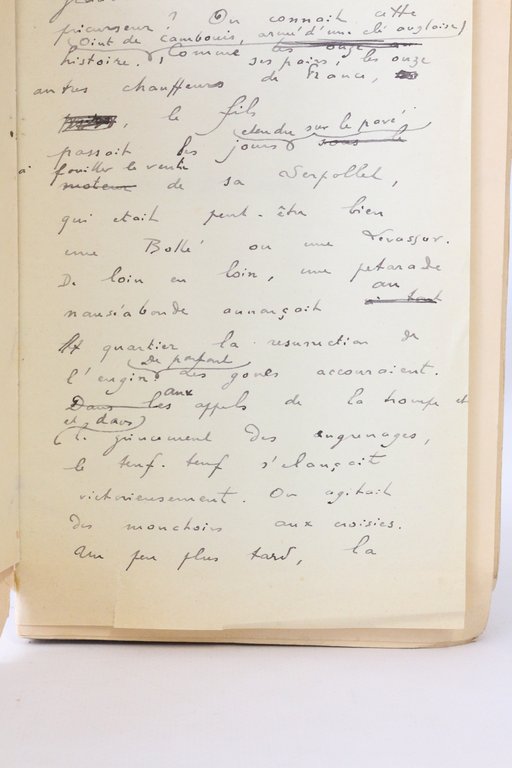 précurseur ? On connait cette
(Oint de cambouis, armé d'une clé anglaise,)
histoire. Comme ses pairs, les onze
autres chauffeurs de France,
le fils
étendu sur le pavé
passait les jours sous le
à fouiller le ventre
moteur de sa Serpollet,
qui était peut-être bien
une Bollé ou une Levassor.
De loin en loin, une pétarade
au
nauséabonde annonçait
quartier la résurrection de
De partout
l'engin, des gones accouraient.
aux
Dans les appels de la trompe et
et, dans
le grincement des engrenages,
le teuf-teuf s'élançait
victorieusement. On agitait
des mouchoirs aux croisées.
Un peu plus tard, la